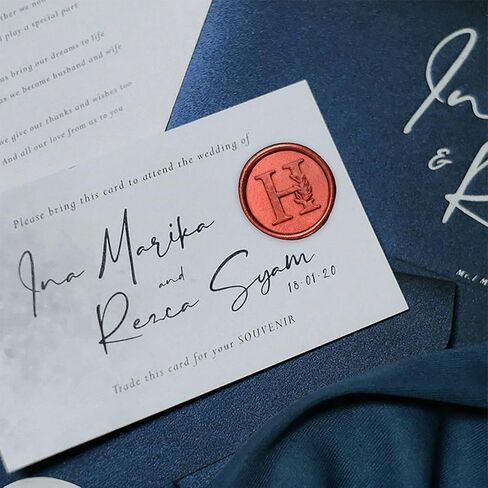 we now
play a special part
us bring our dreams to life
as we become husband and wife
we give our thanks and wishes too
And all our love from us to you
Please bring this card to attend the wedding of
H
Ina Marika
and
Rezca Syam
18·01·20
Trade this card for your SOUVENIR
&
Mr. / M